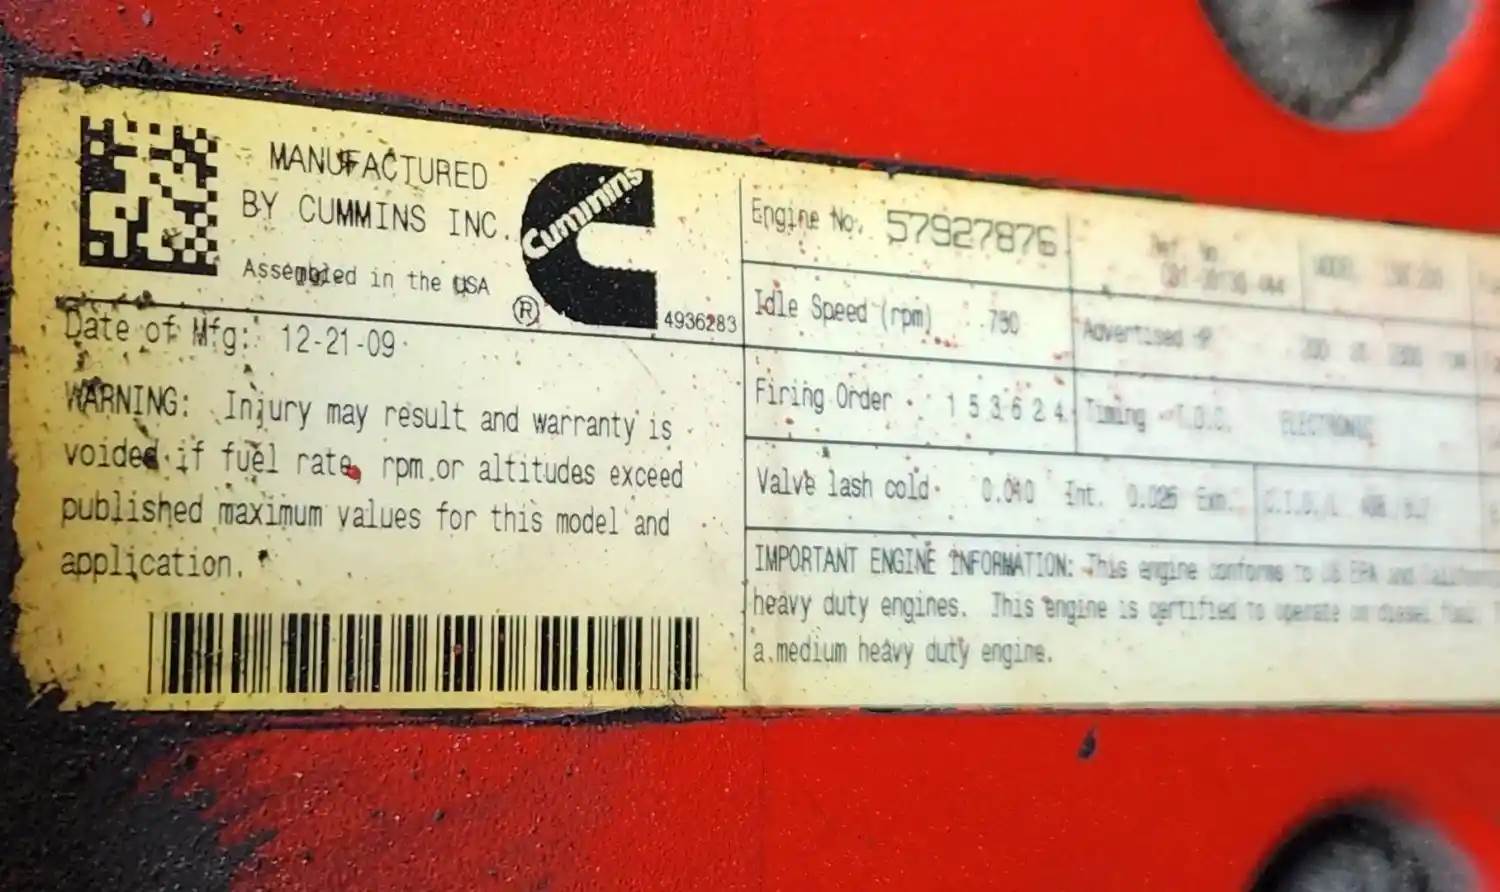 MANUFACTURED
BY CUMMINS INC.
Assembled in the USA
Cummins
®
4936283
Date of Mfg: 12-21-09
WARNING: Injury may result and warranty is
voided if fuel rate, rpm or altitudes exceed
published maximum values for this model and
application.
Engine No. 57927876
Idle Speed (rpm)
Advertised HP
Firing Order 1 5 3 6 2 4
Timing - T.D.C. ELECTRONIC
Valve lash cold 0.010 Int. 0.026 Exh.
IMPORTANT ENGINE INFORMATION: This engine conforms to US EPA and
heavy duty engines. This engine is certified to operate on diesel fuel.
a medium heavy duty engine.